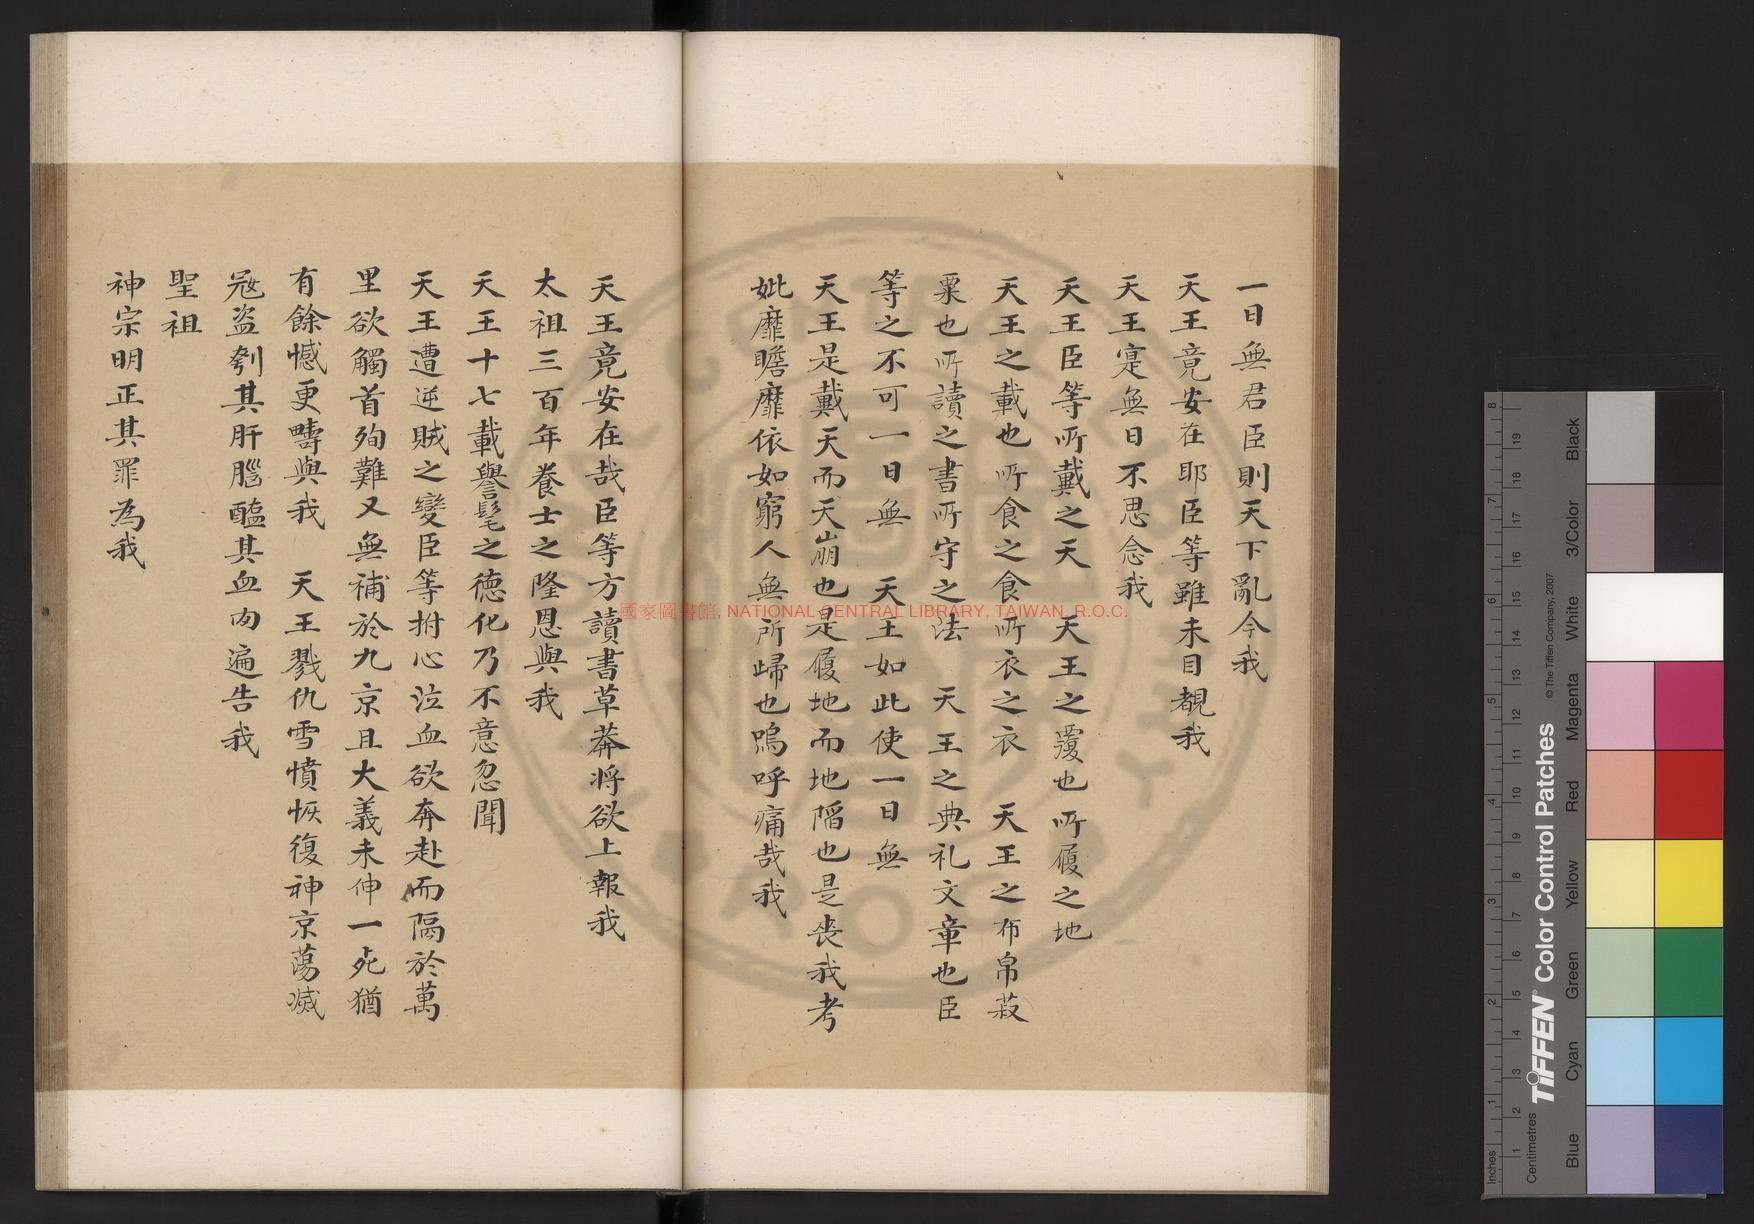 一日無君臣則天下亂今我
天王竟安在耶臣等雖未目覩我
天王寔無日不思念我
天王臣等所戴之天　天王之覆也所履之地
天王之載也所食之食所衣之衣　天王之布帛菽
粟也所讀之書所守之法　天王之典礼文章也臣
等之不可一日無　天王如此使一日無
天王是戴天而天崩也是履地而地陷也是喪我考
妣靡瞻靡依如窮人無所歸也嗚呼痛哉我
天王竟安在哉臣等方讀書草莽将欲上報我
太祖三百年養士之隆恩與我
天王十七載譽髦之德化乃不意忽聞
天王遭逆賊之變臣等拊心泣血欲奔赴而隔於萬
里欲觸首殉難又無補於九京且大義未伸一死猶
有餘憾更疇與我　天王戮仇雪憤恢復神京蕩滅
寇盜刳其肝腦醢其血肉遍告我
聖祖
神宗明正其罪為我
國家圖書館, NATIONAL CENTRAL LIBRARY, TAIWAN, R.O.C.
TIFFEN® Color Control Patches
© The Tiffen Company, 2007
Inches
Centimetres
Blue
Cyan
Green
Yellow
Red
Magenta
White
3/Color
Black